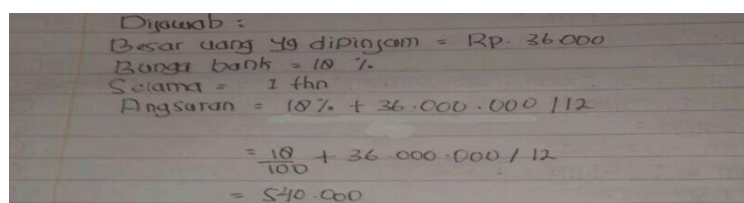 Dijawab :
Besar uang yg dipinjam = Rp. 36.000
Bunga bank = 18 %
Selama = 1 thn
Angsuran = 18% + 36.000.000 / 12
= 18/100 + 36.000.000 / 12
= 540.000